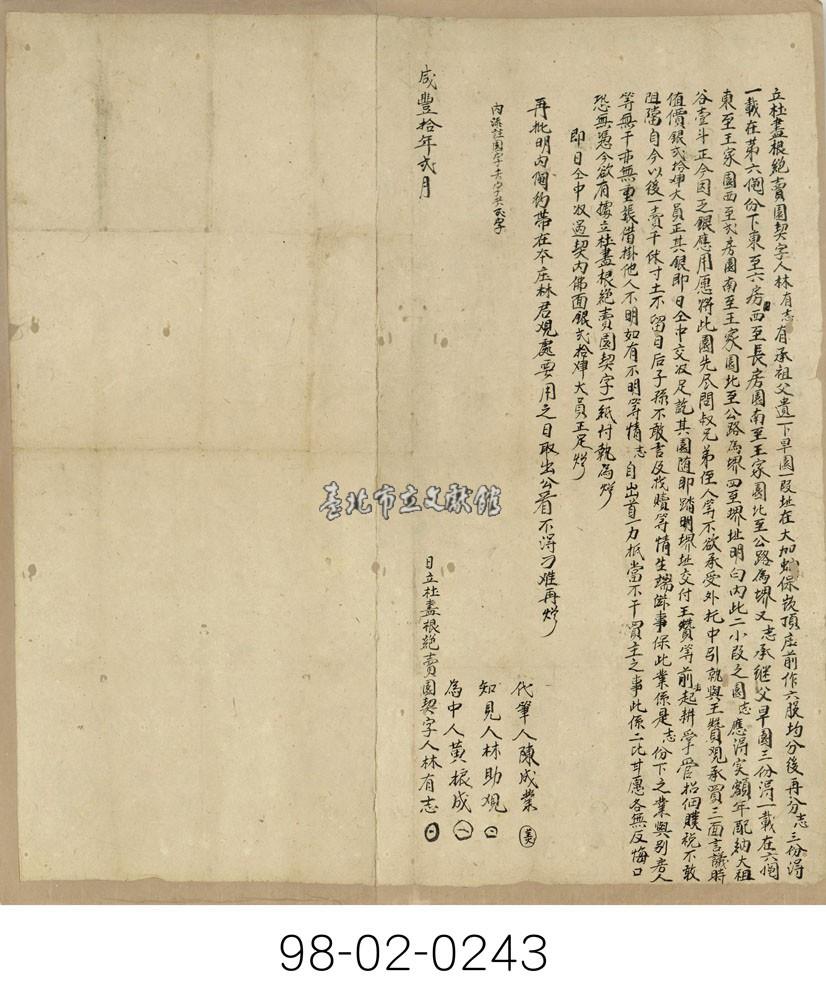 立杜盡根絕賣園契字人林有志有承祖父遺下旱園一段址在大加蚋保崁頂庄前作六股均分後再分志三份得
一載在第六鬮份下東至六房西至長房園南至王家園北至公路為堺又志承継父旱園三份得一載在六鬮
東至王家園西至弍房園南至王家園北至公路為堺四至堺址明白內此二小段之園志應得实額年配納大租
谷壹斗正今因乏銀應用愿將此園先尽問叔兄弟侄人等不欲承受外托中引就與王贊观承買三面言議時
值價銀弍拾肆大員正其銀即日仝中交收足訖其園隨即踏明堺址交付王贊等前起耕掌管招佃贌稅不敢
阻擋自今以後一賣千休寸土不留日后子孫不敢言及找贖等情生端滋事保此業係是志份下之業與別房人
等無干亦無重張借掛他人不明如有不明等情志自出首一力抵當不干買主之事此係二比甘愿各無反悔口
恐無憑今欲有據立杜盡根絕賣園契字一紙付執為炤
即日仝中收過契內佛面銀弍拾肆大員正足炤
再批明內鬮約帶在本庄林君观處要用之日取出公看不得刁难再炤
內添註園字
代筆人陳成業
知見人林助观
為中人黃振成
咸豐拾年弍月 日立杜盡根絕賣園契字人林有志
臺北市立文獻館
98-02-0243